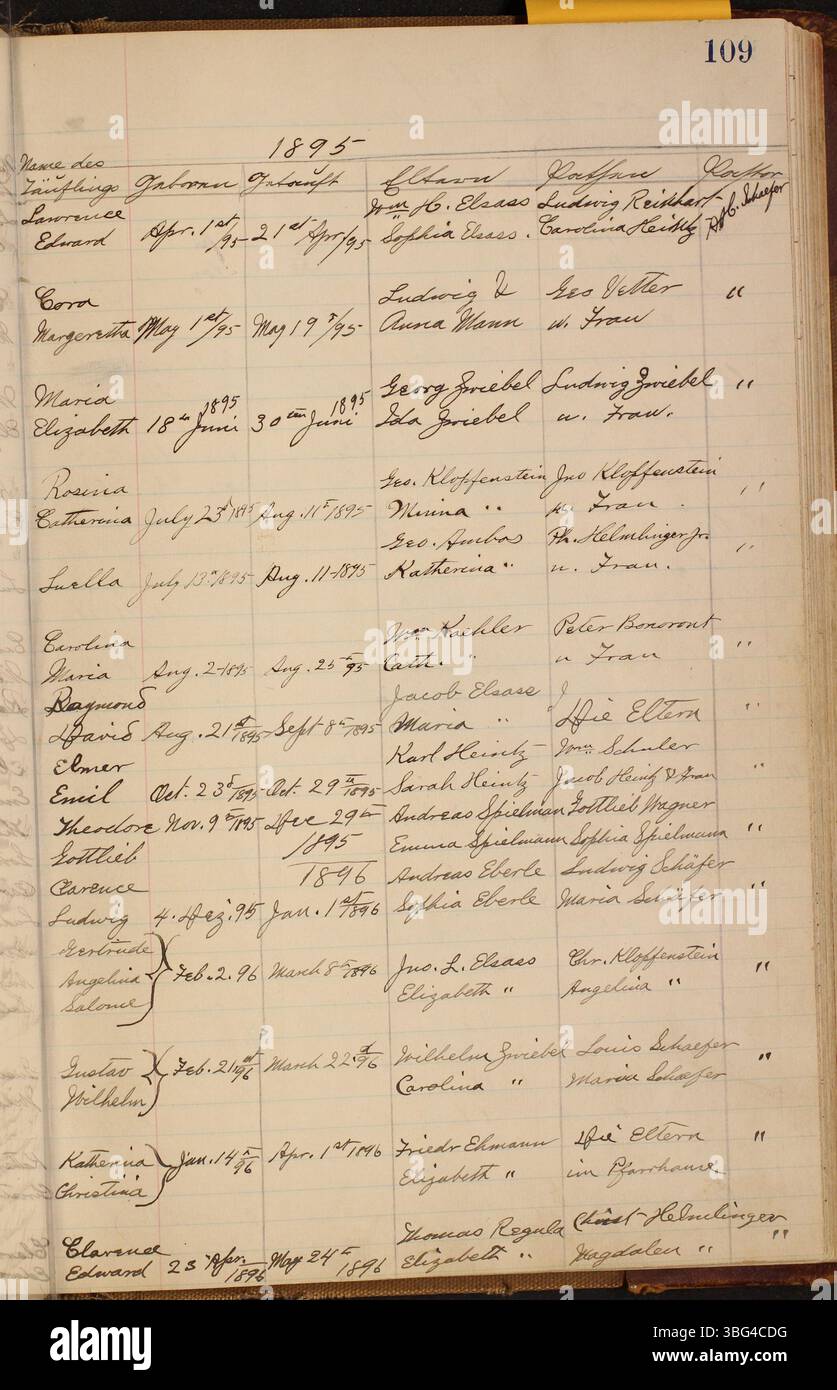 109
1895
Name des
Täuflings Geboren Getauft Eltern Pathen Pastor
Lawrence Wm H. Elsass Ludwig Reinhart
Edward Apr. 1st/95 21st Apr/95 Sophia Elsass. Carolina Heintz Schaefer
Cora Ludwig & Geo Vetter "
Margeretha May 1st/95 May 19/95 Anna Mann u. Frau
Maria 1895 1895 Georg Zwiebel Ludwig Zwiebel "
Elizabeth 18ten Juni 30ten Juni Ida Zwiebel u. Frau.
Rosina Geo. Klopfenstein Jno Klopfenstein "
Catherina July 23d 1895 Aug. 11 1895 Minna " u. Frau.
Geo. Ambos Ph. Helmlinger Jr. "
Luella July 13 1895 Aug. 11-1895 Katherina " u. Frau.
Carolina Wm Koehler Peter Bonoront "
Maria Aug. 2-1895 Aug. 25/95 Cath. " u Frau
Raymond Jacob Elsass "
David Aug. 21st/1895 Sept 8th 1895 Maria " Die Eltern
Elmer Karl Heintz Wm Schuler "
Emil Oct. 23d/1895 Oct. 29th/1895 Sarah Heintz Jacob Heintz & Frau
Theodore Nov. 9th 1895 Dec 29th Andreas Spielman Gottlieb Wagner
Gottlieb 1895 Emma Spielmann Sophia Spielmann "
Clarence 1896 Andreas Eberle Ludwig Schäfer
Ludwig 4. Dez. 95 Jan. 1st/1896 Sophia Eberle Maria Schäfer "
Gertrude
Angelina Feb. 2. 96 March 8th 1896 Jno. L. Elsass Chr. Klopfenstein "
Salome Elizabeth " Angelina "
Gustav Feb. 21st/96 March 22d/96 Wilhelm Zwiebel Louis Schaefer "
Wilhelm Carolina " Maria Schaefer
Katherina Jan. 14/96 Apr. 1st 1896 Friedr Ehmann Die Eltern "
Christina Elizabeth " im Pfarrhause
Clarence Thomas Regula Christ Helmlinger "
Edward 23 Apr./1896 May 24th 1896 Elizabeth " Magdalen "